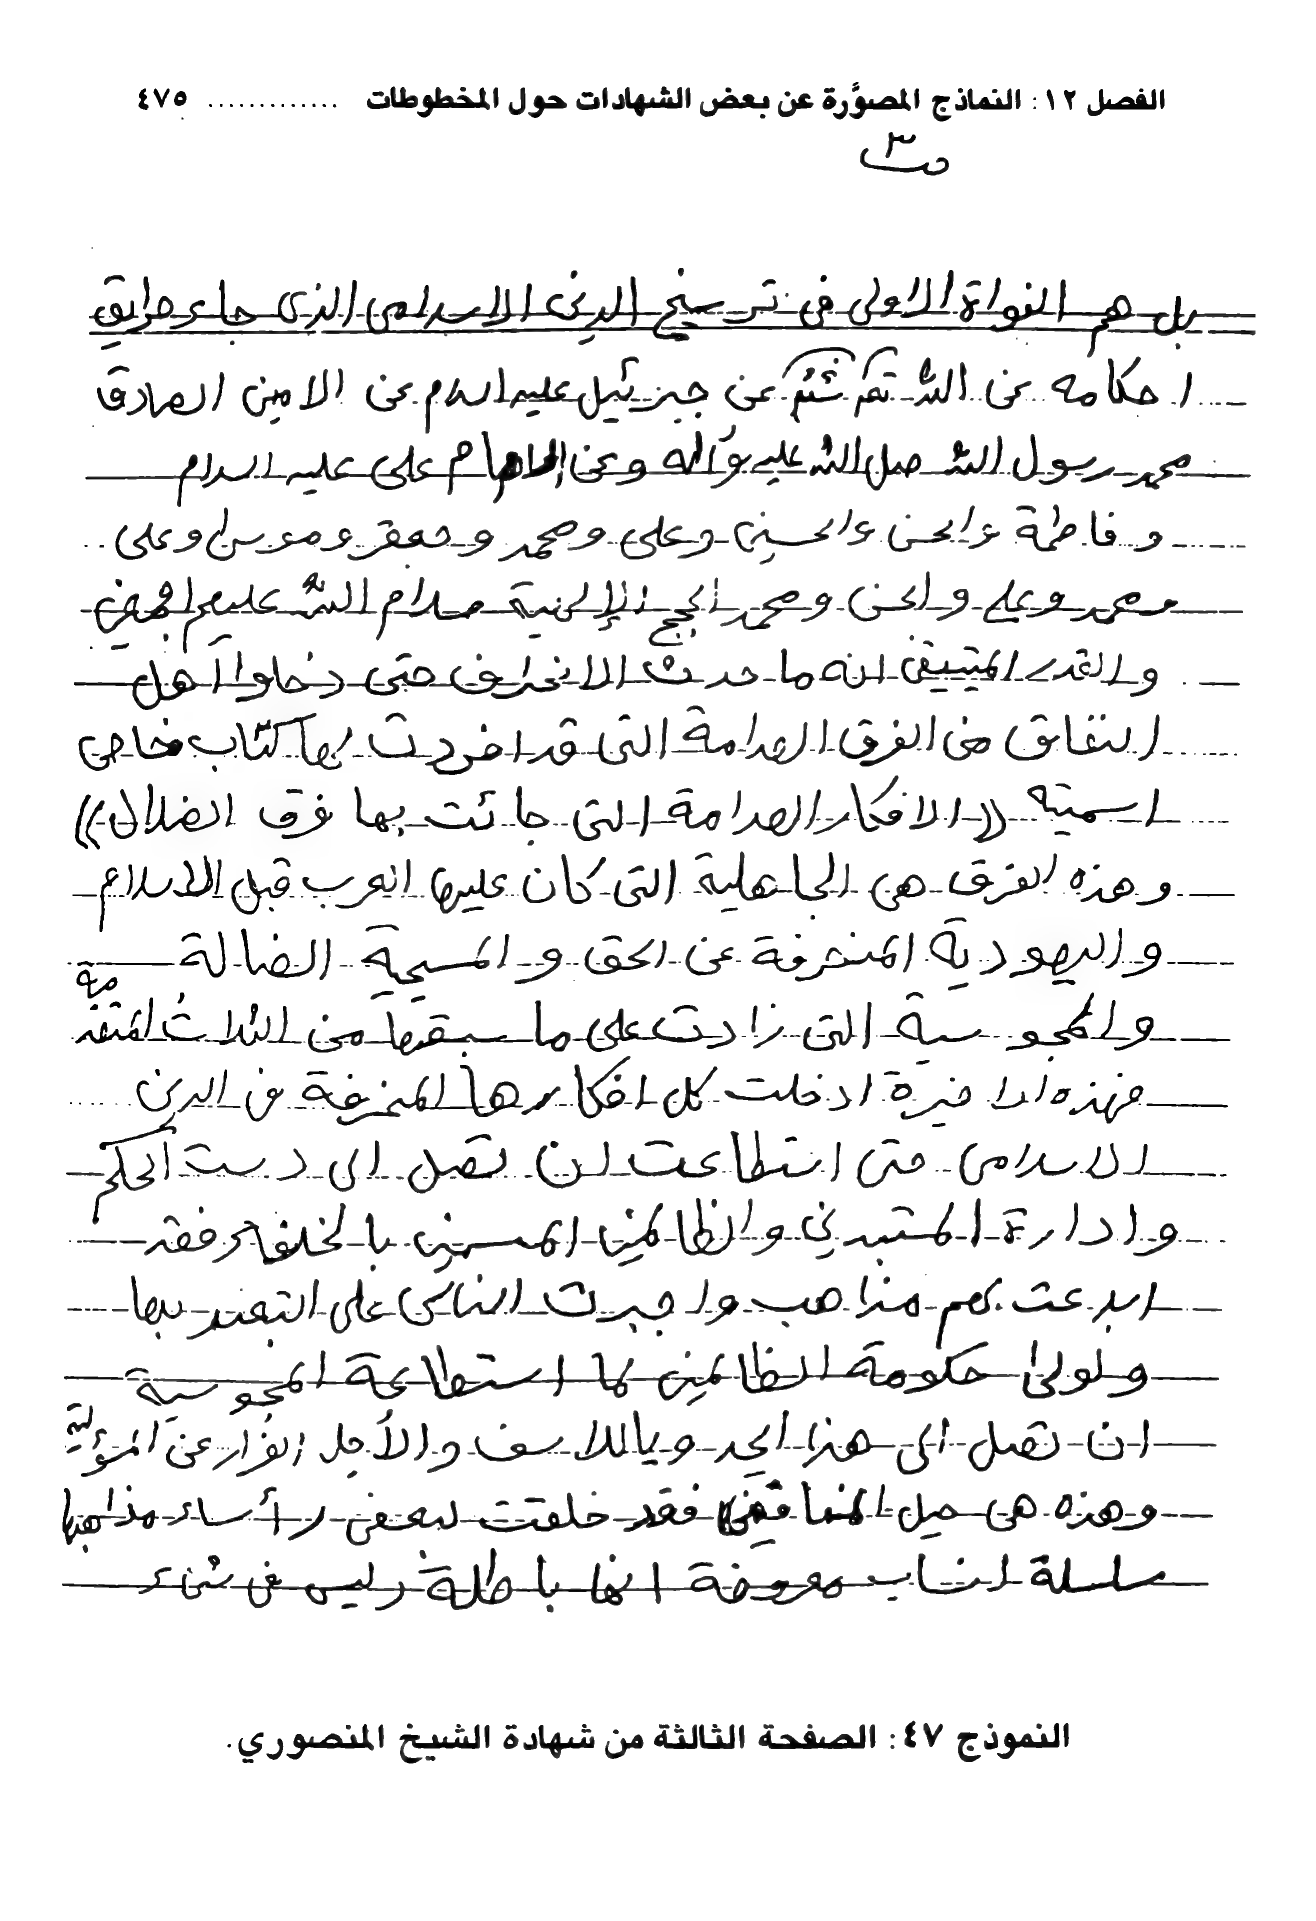 الفصل ١٢: النماذج المصوَّرة عن بعض الشهادات حول المخطوطات ............. ٤٧٥
ص ٣
بل هم النواة الاولى في ترسيخ الدين الاسلامي الذي جاء طريق
احكامه عن الله ثم عن جبرئيل عليه السلام عن الامين الصادق
محمد رسول الله صل الله عليه وآله وعن الامام علي عليه السلام
وفاطمة والحسن والحسين وعلي ومحمد وجعفر وموسى وعلي
ومحمد وعلي والحسن ومحمد الحجج الإلهية سلام الله عليهم اجمعين
والقدر المتيقن انه ما حدث الانحراف حتى دخلوا أهل
النفاق من الفرق الهدامة التي قد افردت بها كتاب خاص
اسميته ((الافكار الهدامة التي جائت بها فرق الضلال))
وهذه الفرق هي الجاهلية التي كان عليها العرب قبل الاسلام
واليهودية المنحرفة عن الحق والمسيحية الضالة
والمجوسية التي زادت على ما سبقها من الثلاث المتقدمة
فهذه الاخيرة ادخلت كل افكارها المنحرفة في الدين
الاسلامي حتى استطاعت ان تصل الى دست الحكم
وادارة المستبدين والظالمين المسمين بالخلفاء فقد
ابدعت لهم مذاهب واجبرت الناس على التعبد بها
ولولى حكومة الظالمين لما استطاعة المجوسية
ان تصل الى هذا الحد وياللاسف والأجل الفرار عن المسؤلية
وهذه هي حيل المنافقين فقد خلقت لبعض رأساء مذاهبها
سلسلة انساب معروفة انها باطلة وليس في شيء
النموذج ٤٧: الصفحة الثالثة من شهادة الشيخ المنصوري.